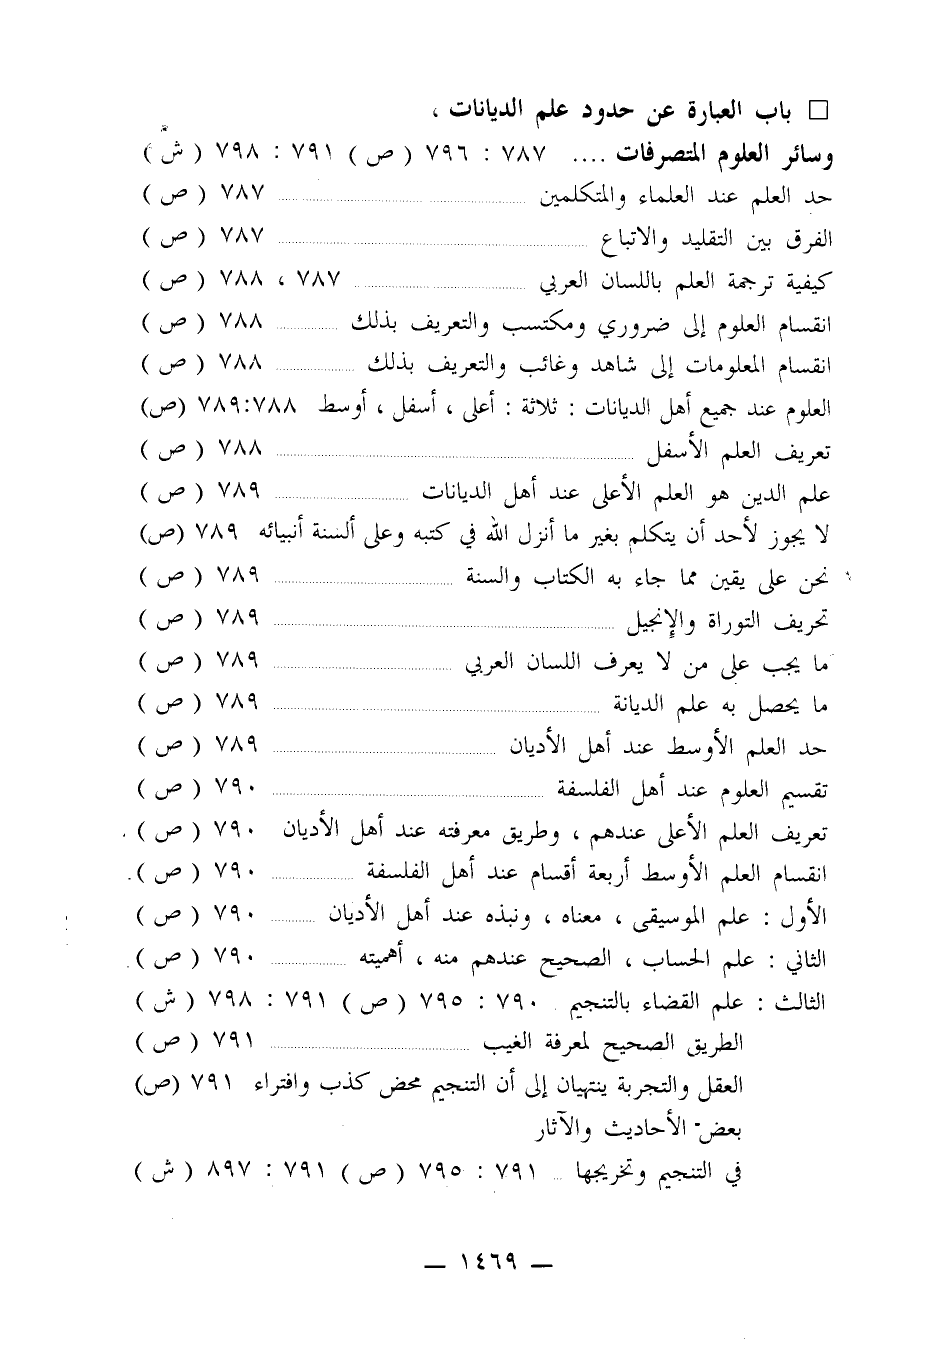 □ باب العبارة عن حدود علم الديانات ،
وسائر العلوم المتصرفات .... ٧٨٧ : ٧٩٦ ( ص ) ٧٩١ : ٧٩٨ ( ش )
حد العلم عند العلماء والمتكلمين ........ ٧٨٧ ( ص )
الفرق بين التقليد والاتباع ........ ٧٨٧ ( ص )
كيفية ترجمة العلم باللسان العربي ........ ٧٨٧ ، ٧٨٨ ( ص )
انقسام العلوم إلى ضروري ومكتسب والتعريف بذلك ........ ٧٨٨ ( ص )
انقسام المعلومات إلى شاهد وغائب والتعريف بذلك ........ ٧٨٨ ( ص )
العلوم عند جميع أهل الديانات : ثلاثة : أعلى ، أسفل ، أوسط ٧٨٨:٧٨٩ (ص)
تعريف العلم الأسفل ........ ٧٨٨ ( ص )
علم الدين هو العلم الأعلى عند أهل الديانات ........ ٧٨٩ ( ص )
لا يجوز لأحد أن يتكلم بغير ما أنزل الله في كتبه وعلى ألسنة أنبيائه ٧٨٩ (ص)
نحن على يقين مما جاء به الكتاب والسنة ........ ٧٨٩ ( ص )
تحريف التوراة والإنجيل ........ ٧٨٩ ( ص )
ما يجب على من لا يعرف اللسان العربي ........ ٧٨٩ ( ص )
ما يحصل به علم الديانة ........ ٧٨٩ ( ص )
حد العلم الأوسط عند أهل الأديان ........ ٧٨٩ ( ص )
تقسيم العلوم عند أهل الفلسفة ........ ٧٩٠ ( ص )
تعريف العلم الأعلى عندهم ، وطريق معرفته عند أهل الأديان ٧٩٠ ( ص )
انقسام العلم الأوسط أربعة أقسام عند أهل الفلسفة ........ ٧٩٠ ( ص )
الأول : علم الموسيقى ، معناه ، ونبذه عند أهل الأديان ........ ٧٩٠ ( ص )
الثاني : علم الحساب ، الصحيح عندهم منه ، أهميته ........ ٧٩٠ ( ص )
الثالث : علم القضاء بالتنجيم . ٧٩٠ : ٧٩٥ ( ص ) ٧٩١ : ٧٩٨ ( ش )
الطريق الصحيح لمعرفة الغيب ........ ٧٩١ ( ص )
العقل والتجربة ينتهيان إلى أن التنجيم محض كذب وافتراء ٧٩١ (ص)
بعض الأحاديث والآثار
في التنجيم وتخريجها ... ٧٩١ : ٧٩٥ ( ص ) ٧٩١ : ٨٩٧ ( ش )
— ١٤٦٩ —